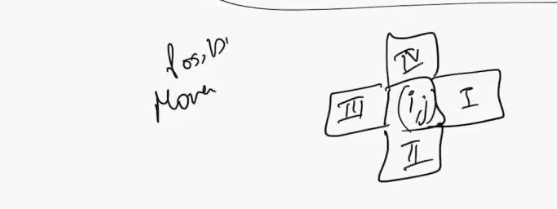 Posbi
Moves
IV
III (i,j) I
II